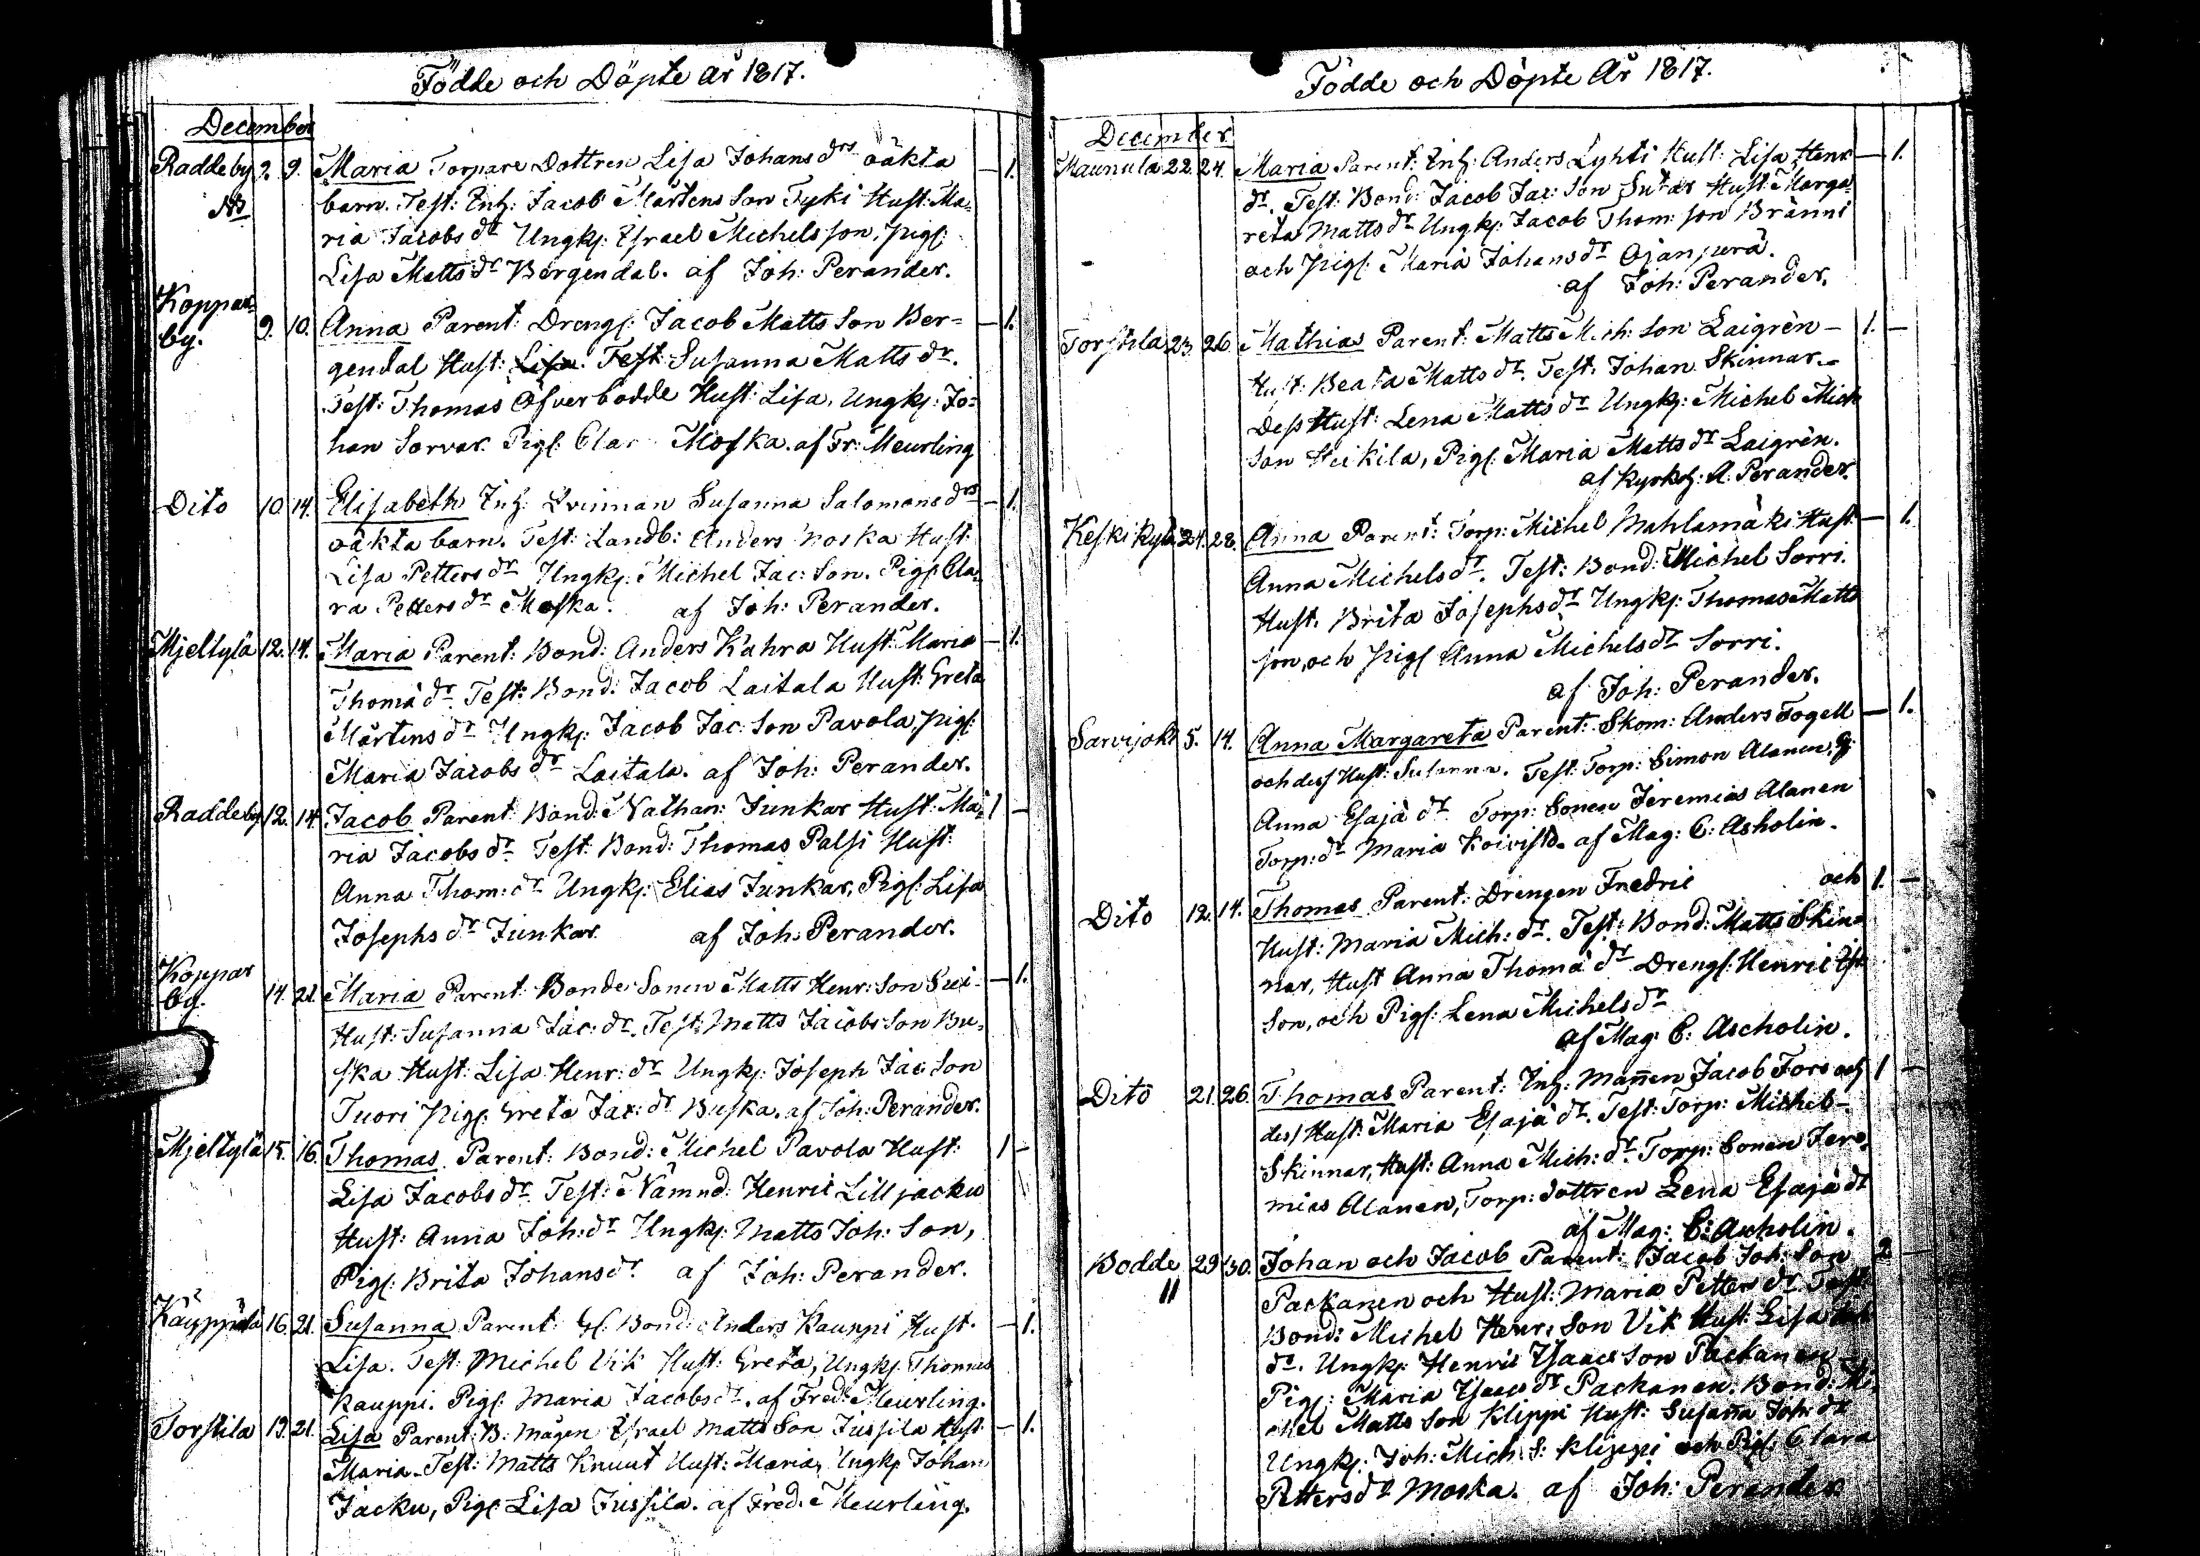 Födde och Döpte år 1817.
December
Raddeby 9. 9. Maria Torpare Dottren Lisa Johans drs oäkta — 1.
NB barn. Test: Inh: Jacob Mårtens Son Tyki Hust: Ma=
ria Jacobs dr Ungk: Israel Michels son, pig:
Lisa Matts dr Bergendal. af Joh: Perander.
Koppar=
by. 9. 10. Anna Parent: Dreng: Jacob Matts Son Ber= — 1.
gendal Hust: Lisa. Test Susanna Matts dr.
Test: Thomas Öfverbodde Hust: Lisa, Ungk: Jo=
han Sorvar. Pig: Clar Moska. af Fr: Meurling
Dito 10 14. Elisabeth Inh: Qvinnan Susanna Salomons drs — 1.
oäkta barn. Test: Landb: Anders Moska Hust:
Lisa Petters dr Ungk: Michel Jac: Son. Pig: Cla=
ra Petters dr Moska. af Joh: Perander.
Mjeltylä 12. 14. Maria Parent: Bond: Anders Kahra Hust: Maria — 1.
Thomä dr. Test: Bond: Jacob Laitala Hust: Greta
Mårtens dr Ungk: Jacob Jac: Son Pavola, pig:
Maria Jacobs dr Laitala. af Joh: Perander.
Raddeby 12. 14. Jacob Parent: Bond: Nathan: Junkar Hust: Ma= 1 —
ria Jacobs dr Test: Bond: Thomas Palsi Hust:
Anna Thom: dr Ungk: Elias Junkar, Pig: Lisa
Josephs dr Junkar af Joh: Perander.
Koppar
by. 14. 21. Maria Parent: Bonde Sonen Matts Henr: Son Sui- — 1.
Hust: Susanna Jac: dr. Test: Matts Jacobs Son Bu=
ska Hust: Lisa Henr: dr Ungk: Joseph Jac: Son
Tuori Pig: Greta Jac: dr Buska. af Joh: Perander.
Mjeltylä 15. 16. Thomas Parent: Bond: Michel Pavola Hust: 1 —
Lisa Jacobs dr. Test: Nämnd: Henric Lilljacku
Hust: Anna Joh: dr Ungk: Matts Joh: Son,
Pig: Brita Johans dr. af Joh: Perander.
Käuppilä 16. 21. Susanna Parent: Gl: Bond: Anders Kauppi Hust: — 1.
Lisa. Test: Michel Vik Hust: Greta, Ungk: Thomas
Kauppi. Pig: Maria Jacobs dr. af Fred: Meurling.
Torstila 19. 21. Lisa Parent: B: mågen Israel Matts Son Jussila Hust: — 1.
Maria. Test: Matts Knuut Hust: Maria, Ungk: Johan
Jacku, Pig: Lisa Jussila. af Fred: Meurling.
Födde och Döpte År 1817.
December
Maunula 22. 24. Maria Parent: Inh: Anders Lyhti Hust: Lisa Henr — 1.
dr. Test: Bond: Jacob Jac: Son Hust: Marga=
reta Matts dr Ungk: Jacob Thom: son Bränni
och pig: Maria Johans dr Ojanperä.
af Joh: Perander.
Torstila 23. 26. Mathias Parent: Matts Mich: Son Laigrèn — 1. —
Hust: Beata Matts dr. Test: Johan Skinnar.
Dess Hust: Lena Matts dr Ungk: Michel Mich
Son Heikilä, Pig: Maria Matts dr Laigrèn.
af Kyrkoh: A. Perander.
Keskikylä 24. 28. Anna Parent: Torp: Michel Mahlamäki Hust — 1.
Anna Michels dr. Test: Bond: Michel Sorri.
Hust. Brita Josephs dr Ungk: Thomas Matts
son, och pig Anna Michels dr Sorri.
af Joh: Perander.
Sarvijoki 5. 14. Anna Margareta Parent: Skom: Anders Fogell — 1.
och dess Hust: Susanna. Test: Torp: Simon Alanen,
Anna Esajä dr. Torp: Sonen Jeremias Alanen
Torp: dr Maria Koivisto. af Mag: C: Asholin.
Dito 12. 14. Thomas Parent: Drengen Fredric och 1. —
Hust: Maria Mich: dr. Test: Bond: Matts Skin=
nar, Hust Anna Thomä dr Dreng: Henric
Son, och Pig: Lena Michels dr
af Mag C: Ascholin.
Dito 21. 26. Thomas Parent: Inh: Mannen Jacob Fors och 1 —
dess Hust: Maria Esajä dr. Test: Torp: Michel
Skinnar, Hust: Anna Mich: dr. Torp: Sonen Jere=
mias Alanen, Torp: dottren Lena Esajä dr
af Mag: C: Ascholin.
Bodde 29. 30. Johan och Jacob Parent: Jacob Joh: Son 2 —
11 Packanen och Hust: Maria Petters dr Test:
Bond: Michel Henr: Son Vik Hust: Lisa
dr. Ungk: Henric Isaacs Son Packanen
Pig: Maria Isaacs dr Packanen. Bond: Mi=
chel Matts Son Klippi Hust: Susanna Joh: dr
Ungk: Joh: Mich: S: Klippi och Pig: Clara
Petters dr Moska. af Joh: Perander.